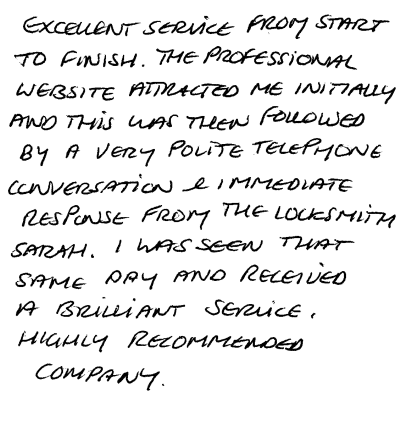 EXCELLENT SERVICE FROM START
TO FINISH. THE PROFESSIONAL
WEBSITE ATTRACTED ME INITIALLY
AND THIS WAS THEN FOLLOWED
BY A VERY POLITE TELEPHONE
CONVERSATION & IMMEDIATE
RESPONSE FROM THE LOCKSMITH
SARAH. I WAS SEEN THAT
SAME DAY AND RECEIVED
A BRILLIANT SERVICE.
HIGHLY RECOMMENDED
COMPANY.